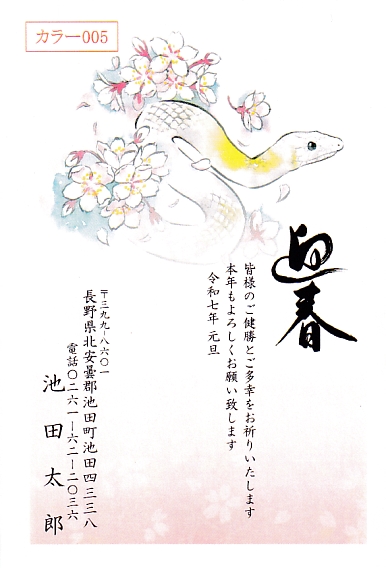 カラー005
迎春
皆様のご健勝とご多幸をお祈りいたします
本年もよろしくお願い致します
令和七年 元旦
〒三九九-八六〇一
長野県北安曇郡池田町池田四三三八
電話〇二六一-六二-二〇三六
池田太郎